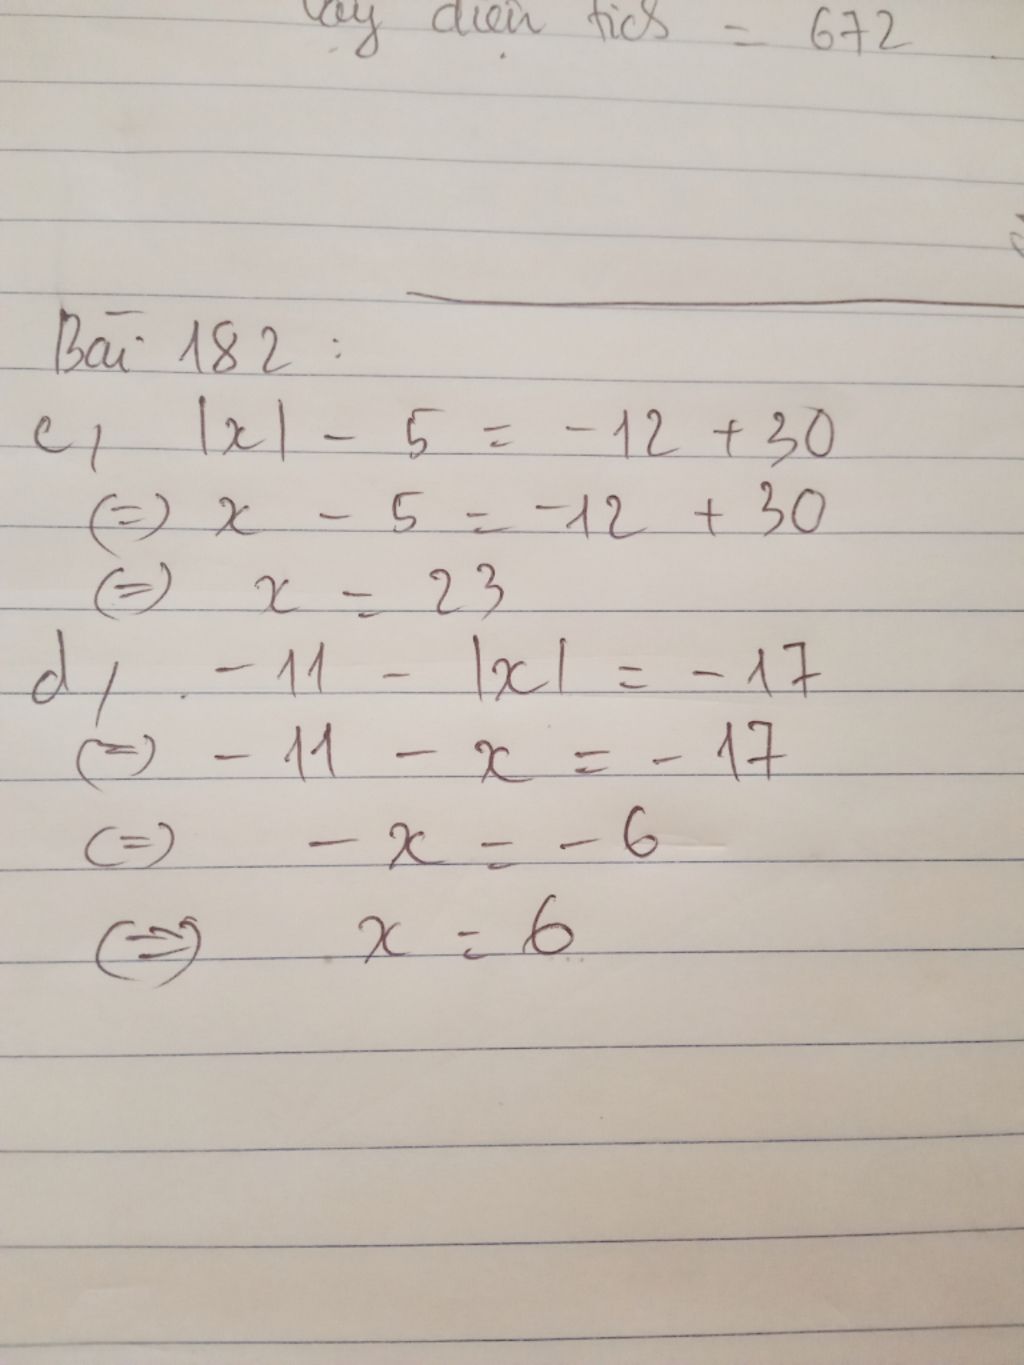 Vậy diện tích = 672
Bài 182 :
c, |x| - 5 = -12 + 30
(=) x - 5 = -12 + 30
(=) x = 23
d, -11 - |x| = -17
(=) -11 - x = -17
(=) -x = -6
(=) x = 6